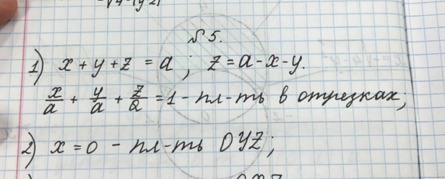 №5.
1) x + y + z = a ; z = a - x - y.
x/a + y/a + z/a = 1 - пл-ть в отрезках;
2) x = 0 - пл-ть OYZ;